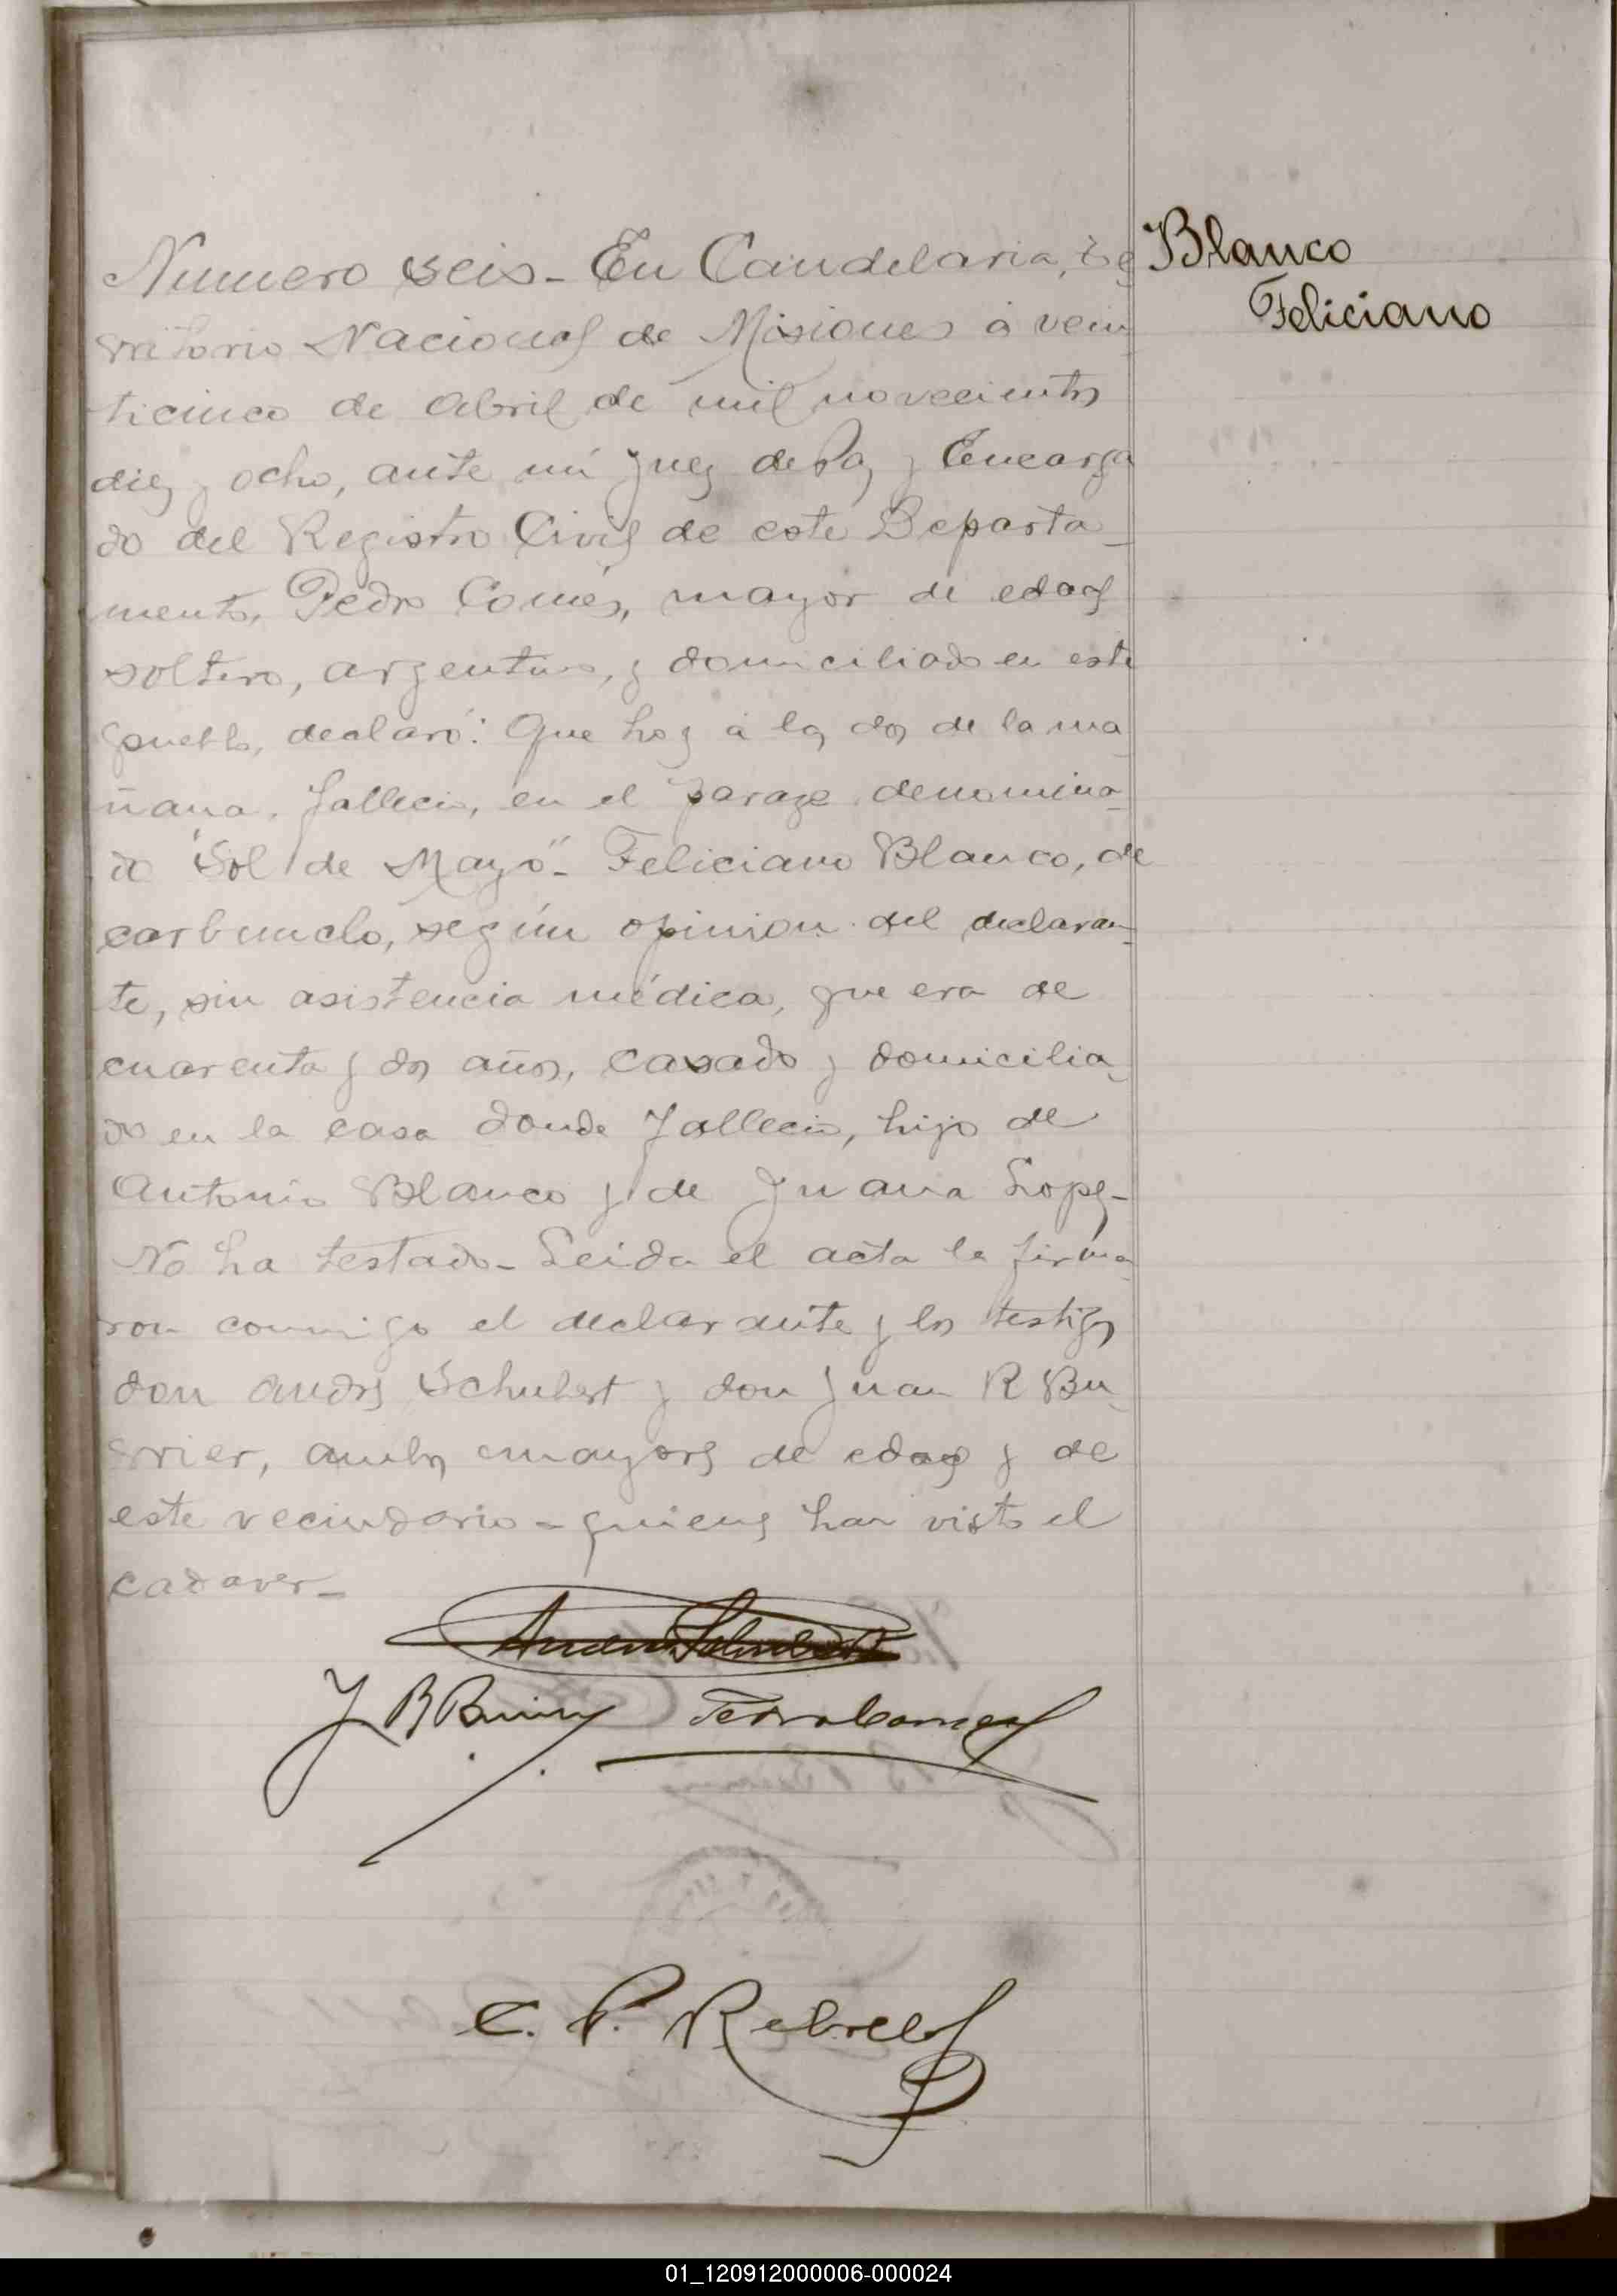 Blanco
Feliciano
Numero seis - En Candelaria, te
rritorio Nacional de Misiones á vein
ticinco de Abril de mil novecientos
diez y ocho, ante mí Juez de Paz y Encarga
do del Registro Civil de este Departa-
mento, Pedro Comes, mayor de edad
soltero, argentino, y domiciliado en este
pueblo, declaró: Que hoy á las dos de la ma
ñana, fallecio, en el paraje denomina-
do "Sol de Mayo" - Feliciano Blanco, de
carbunclo, según opinion del declaran-
te, sin asistencia médica, que era de
cuarenta y dos años, casado y domicilia-
do en la casa donde fallecio, hijo de
Antonio Blanco y de Juana Lopez -
No ha testado - Leida el acta la firma-
ron conmigo el declarante y los testigos
don Andrés Schubert y don Juan R Bu-
rrier, ambos mayores de edad y de
este vecindario - quienes han visto el
cadaver -
Andres Schubert
J B Pedro Comes
C. P. Rebrelo
01_120912000006-000024